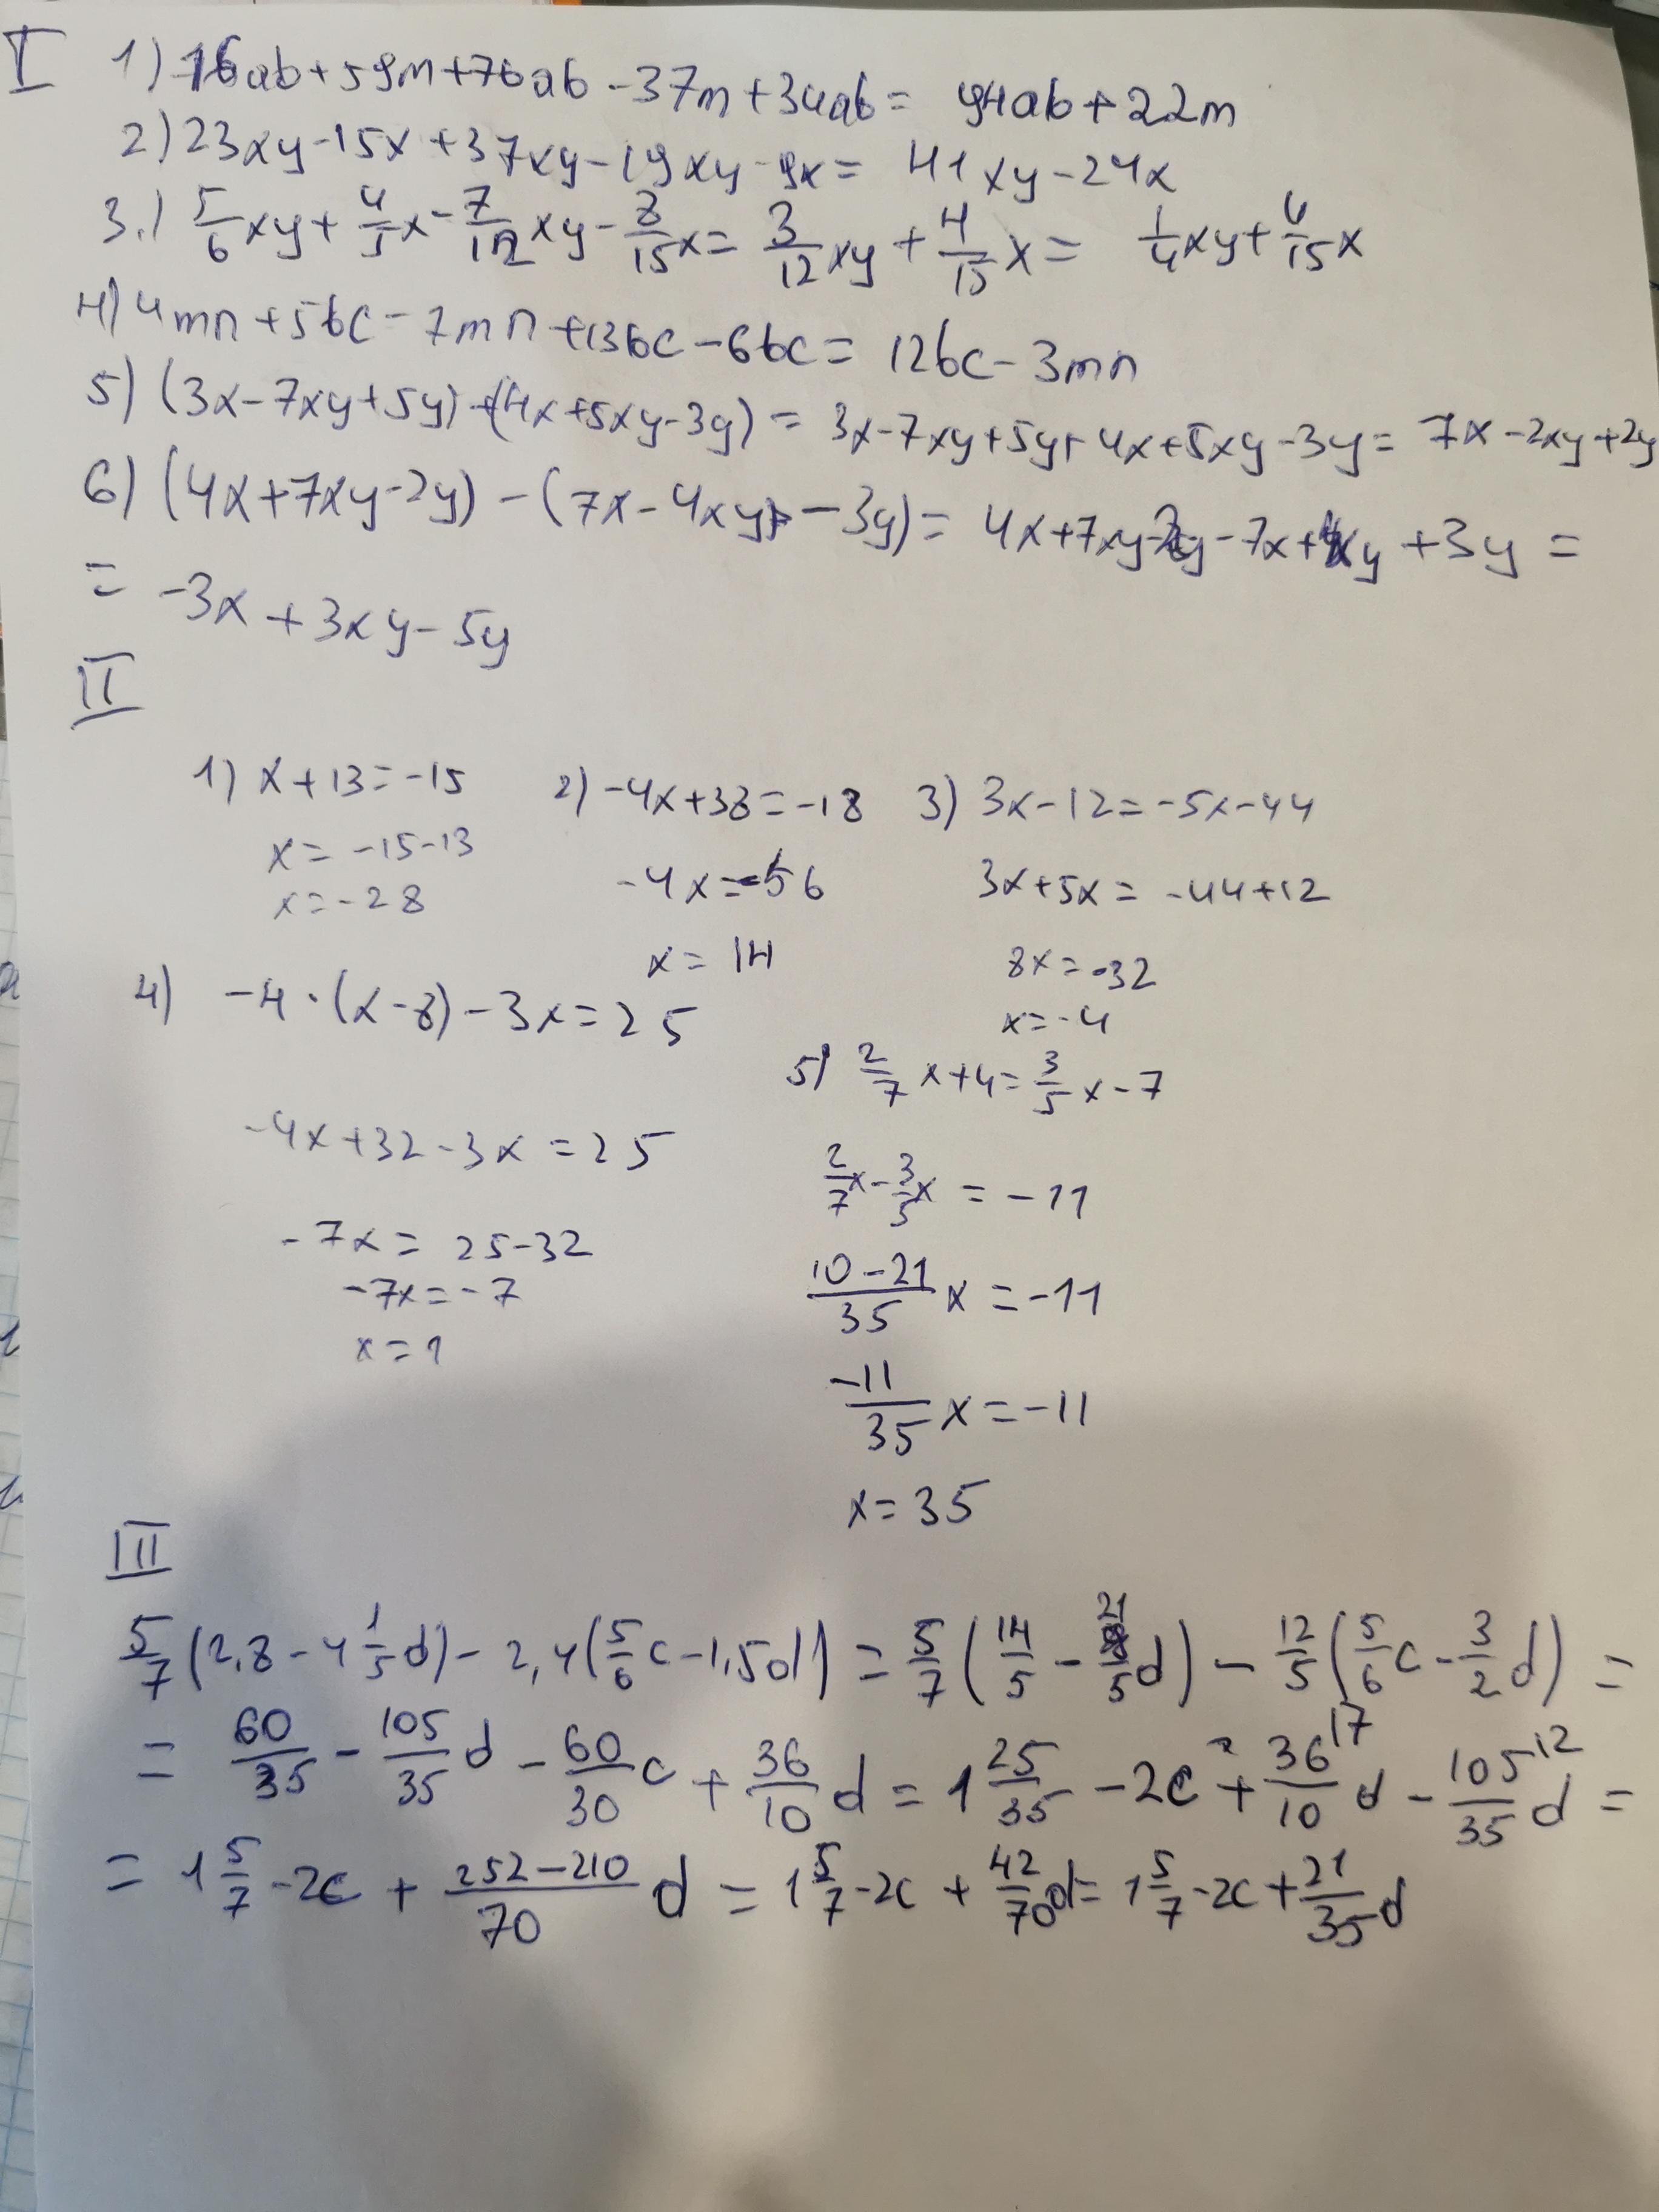 I 1) -16ab+59m+76ab-37m+34ab= 94ab+22m
2) 23xy-15x+37xy-19xy-9x= 41xy-24x
3.) 5/6 xy + 4/5 x - 7/12 xy - 8/15 x = 3/12 xy + 4/15 x = 1/4 xy + 4/15 x
4) 4mn+5bc-7mn+13bc-6bc= 12bc-3mn
5) (3x-7xy+5y)+(4x+5xy-3y)= 3x-7xy+5y+4x+5xy-3y= 7x-2xy+2y
6) (4x+7xy-2y)-(7x-4xy-3y)= 4x+7xy-2y-7x+4xy+3y=
= -3x+3xy-5y
II
1) x+13=-15
x=-15-13
x=-28
2) -4x+38=-18
-4x=-56
x=14
3) 3x-12=-5x-44
3x+5x=-44+12
8x=-32
x=-4
4) -4·(x-8)-3x=25
-4x+32-3x=25
-7x=25-32
-7x=-7
x=1
5) 2/7 x+4= 3/5 x-7
2/7 x - 3/5 x = -11
10-21/35 x = -11
-11/35 x = -11
x=35
III
5/7 (2,8-4 1/5 d)-2,4(5/6 c-1,5d) = 5/7 (14/5 - 21/5 d) - 12/5 (5/6 c - 3/2 d) =
= 60/35 - 105/35 d - 60/30 c + 36/10 d = 1 25/35 - 2c + 36/10 17 d - 105/35 12 d =
= 1 5/7 - 2c + 252-210/70 d = 1 5/7 - 2c + 42/70 d = 1 5/7 - 2c + 21/35 d